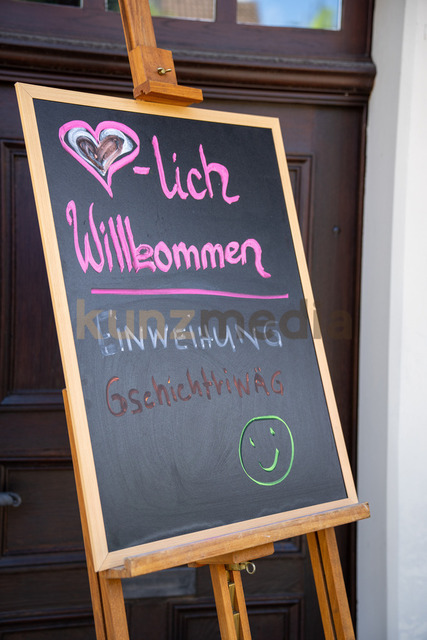 -lich
Willkommen
EINWEIHUNG
GschichtriNÄG
kunzmedia